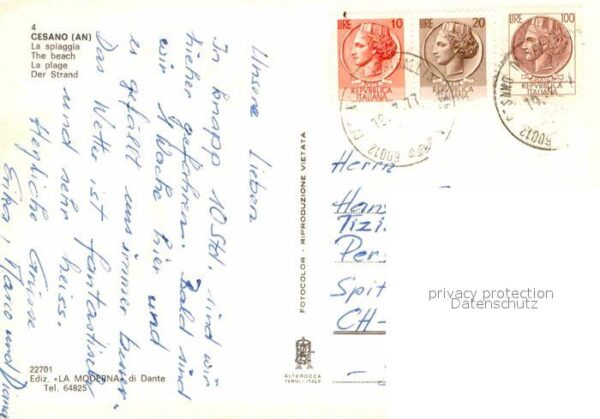 4
CESANO (AN)
La spiaggia
The beach
La plage
Der Strand
Unsere Lieben
In knapp 10 Std. sind wir
hieher gefahren. Bald sind
wir 1 Woche hier und
es gefällt uns immer besser.
Das Wetter ist fantastisch
und sehr heiss.
Herzliche Grüsse
Erika, Mario und Diana
22701
Ediz. «LA MODERNA» di Dante
Tel. 64825
FOTOCOLOR - RIPRODUZIONE VIETATA
ALTEROCCA
TERNI - ITALY
LIRE 10
REPVBBLICA
ITALIANA
LIRE 20
REPVBBLICA
ITALIANA
LIRE 100
REPVBBLICA
ITALIANA
60012
60012
Herrn
Han
Tizi
Per
Spit
CH-
privacy protection
Datenschutz